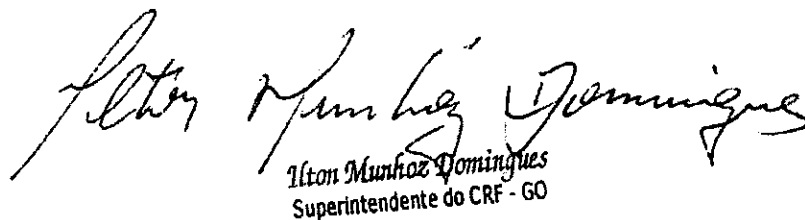 Ilton Munhoz Domingues
Ilton Munhoz Domingues
Superintendente do CRF - GO